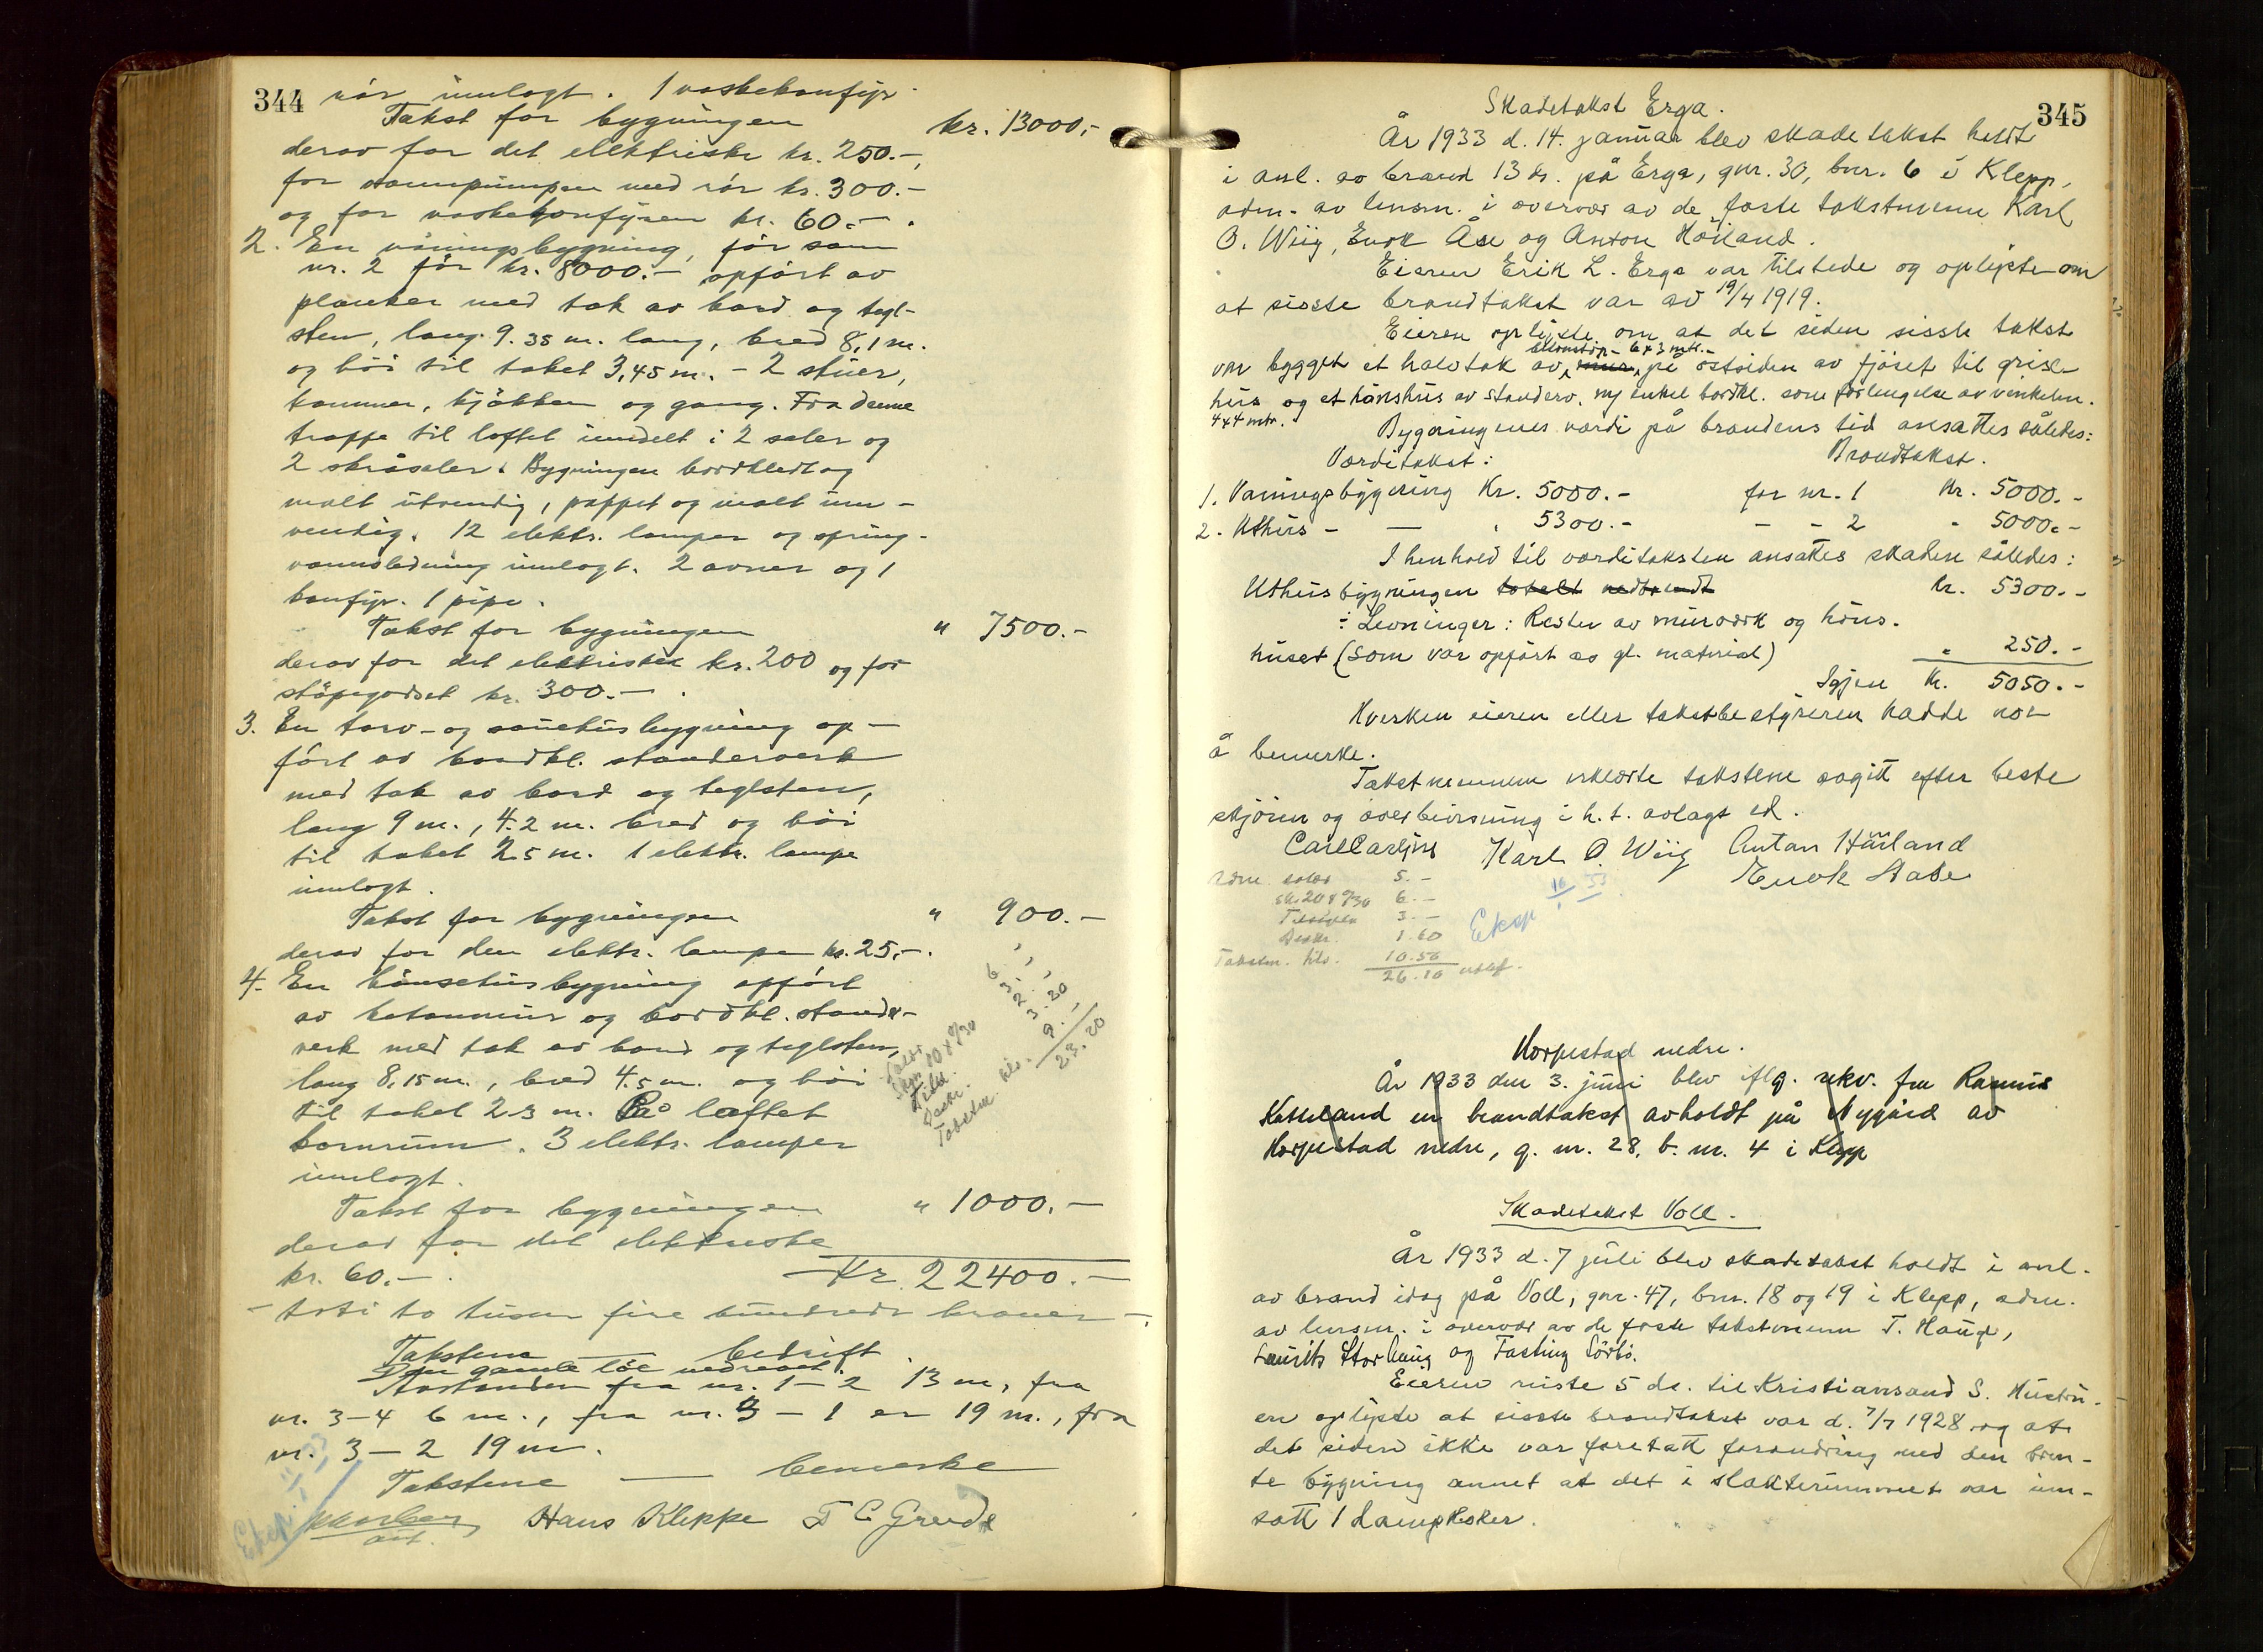 344
rör innlagt. 1 vaskekomfyr.
Takst for bygningen kr. 13000,-
derav for det elektriske kr. 250.-,
for vannpumpen med rör kr. 300.-
og for vaskekomfyren kr. 60.-.
2. En våningsbygning, för som
nr. 2 för kr. 8000.- opfört av
planker med tak av bord og tegl-
sten, lang 9.35 m. lang, bred 8,1 m.
og höi til taket 3,45 m. - 2 stuer,
kammer, kjökken og gang. Fra denne
trappe til loftet inndelt i 2 saler og
2 skråsaler. Bygningen bordkledt og
malt utvendig, pappet og malt inn-
vendig. 12 elektr. lamper og spring-
vannsledning innlagt. 2 ovner og 1
komfyr. 1 pipe.
Takst for bygningen " 7500.-
derav for det elektriske kr. 200 og for
stöpegodset kr. 300.-.
3. En torv- og vaskehusbygning op-
fört av bordkl. standerverk
med tak av bord og teglsten,
lang 9 m., 4.2 m. bred og höi
til taket 2.5 m. 1 elektr. lampe
innlagt.
Takst for bygningen " 900.-
derav for den elektr. lampe kr. 25,-.
4. En hönsehusbygning opfört
av betonmur og bordkl. stander-
verk med tak av bord og teglsten,
lang 8,15 m., bred 4.5 m. og höi
til taket 2.3 m. På loftet
kornrum. 3 elektr. lamper
innlagt.
Takst for bygningen " 1000.-
derav for det elektriske
kr. 60.-. Kr. 22400.-
- toti to tusen fire hundrede kroner -.
Takstene — bedrift.
Den gamle löe nedrevet.
Avstanden fra nr. 1 - 2 13 m, fra
nr. 3-4 6 m., fra nr. 3 - 1 er 19 m., fra
nr. 3 - 2 19 m.
Takstene — bemerke
Hans Kleppe T E Grude
Eksp.
345
Skadetakst Erga.
År 1933 d. 14. januar blev skadetakst holdt
i anl. av brand 13 ds. på Erga, gnr. 30, bnr. 6 i Klepp,
adm. av lensm. i overvær av de faste takstmenn Karl
O. Wiig, Enok Åse og Anton Håland.
Eieren Erik L. Erga var tilstede og oplyste om
at sisste brandtakst var av 19/4 1919.
Eieren oplyste om at det siden sisste takst
betonstöp - 6x3 mtr.-
var bygget et halvtak av mur på östsiden av fjöset til grise-
hus og et hönshus av standerv. m/ enkel bordkl. som forlengelse av vinkelen.
4x4 mtr.
Bygningenes verdi på brandens tid ansattes således:
Værditakst: Brandtakst.
1. Vaningsbygning Kr. 5000.- for nr. 1 Kr. 5000.-
2. Uthus - — " 5300.- - - 2 " 5000.-
I henhold til værditaksten ansattes skaden således:
Uthusbygningen totalt nedbrendt kr. 5300.-
÷ Levninger: Rester av murverk og höns-
huset (som var opfört av gl. material) " 250.-
Igjen Kr. 5050.-
Hverken eieren eller takstbestyreren hadde noe
å bemerke.
Takstmennene erklærte takstene avgitt efter beste
skjönn og overbevisning i h. t. avlagt ed.
Karl O. Wiig Anton Håland
Enok Aase
5.-
6.-
3.-
1.60
Takstm. 10.50
26.10
Eksp
Horpestad nedre.
År 1933 den 3. juni blev iflg. rekv. fra Rasmus
Katteland en brandtakst avholdt på Nygård av
Horpestad nedre, g. nr. 28, b. nr. 4 i Klepp
Skadetakst Voll.
År 1933 d. 7 juli blev skadetakst holdt i anl.
av brand idag på Voll, gnr. 47, bnr. 18 og 19 i Klepp, adm.
av lensm. i overvær av de faste takstmenn T. Haug,
Laurits Storhaug og Tasting Sörbö.
Eieren reiste 5 ds. til Kristiansand S. Hustru-
en oplyste at sisste brandtakst var d. 7/7 1928 og at
det siden ikke var foretatt forandring med den bren-
te bygning annet at det i slakterummet var inn-
satt 1 dampkoker.